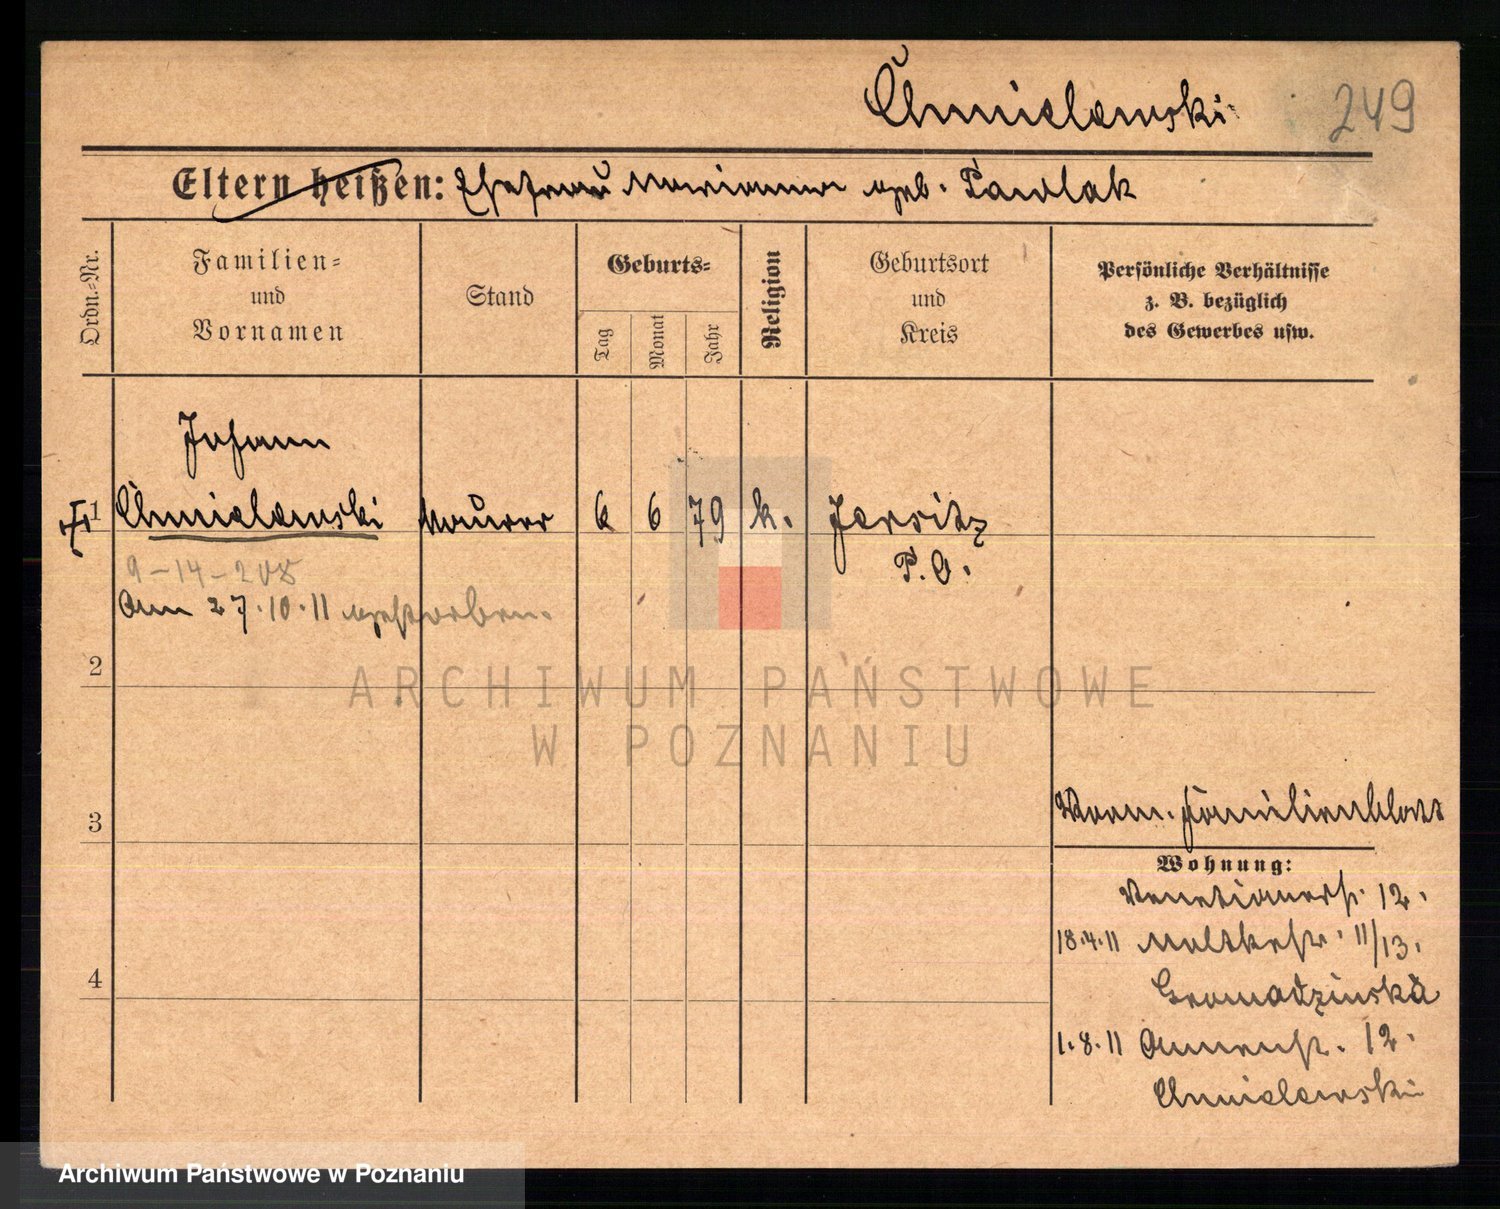 Chmielewski 249
Eltern heißen: Ehefrau Marianna geb. Pawlak
Ordn.-Nr.
Familien-
und
Vornamen
Stand
Geburts-
Tag
Monat
Jahr
Religion
Geburtsort
und
Kreis
Persönliche Verhältnisse
z. B. bezüglich
des Gewerbes usw.
Johann
1 Chmielewski Maurer 6 6 79 k. Jersitz
P. O.
9-14-208
Am 27.10.11 gestorben.
2
ARCHIWUM PAŃSTWOWE
W POZNANIU
3
Familienblatt
Wohnung:
Venetianerstr. 12.
18.4.11 Moltkestr. 11/13.
Gromadzinska
1.8.11 Annenstr. 12.
Chmielewski
4
Archiwum Państwowe w Poznaniu